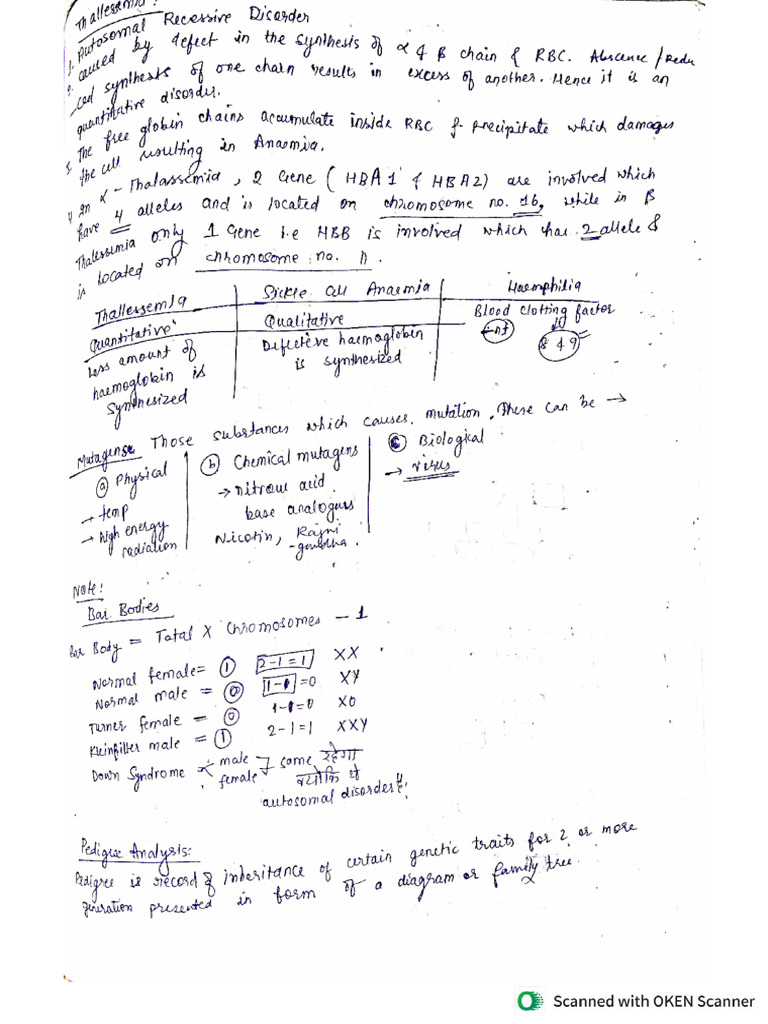 Thallesemia:
1. Autosomal Recessive Disorder
2. Caused by defect in the synthesis of α & β chain of RBC. Abscence/Redu
ced synthesis of one chain results in excess of another. Hence it is an
quantitative disorder.
3. The free globin chains accumulate inside RBC & precipitate which damages
the cell resulting in Anaemia.
4. In α - Thalassemia, 2 Gene (HBA1 & HBA2) are involved which
have 4 alleles and is located on chromosome no. 16, while in β
Thalessemia only 1 Gene i.e HBB is involved which has 2 allele &
is located on chromosome no. 11.
Thallessemia | Sickle Cell Anaemia | Haemphilia
Quantitative | Qualitative | Blood clotting factor
Less amount of | Defective haemoglobin | 8 & 9
haemoglobin is | is synthesized
synthesized
Mutagens: Those substances which causes mutation. These can be →
(a) Physical | (b) Chemical mutagens | (c) Biological
→ temp | → nitrous acid | → virus
→ high energy | base analogues
radiation | Nicotin, Rajni
- gandha.
Note:
Bar Bodies
Bar Body = Total X Chromosomes - 1
Normal female = 1 2-1=1 XX
Normal male = 0 1-1=0 XY
Turner female = 0 1-1=0 XO
Kleinfilter male = 1 2-1=1 XXY
Down Syndrome male same रहेगा
female क्योकि ये
autosomal disorder है.
Pedigree Analysis:
Pedigree is record of inheritance of certain genetic traits for 2 or more
generation presented in form of a diagram or family tree.
Scanned with OKEN Scanner